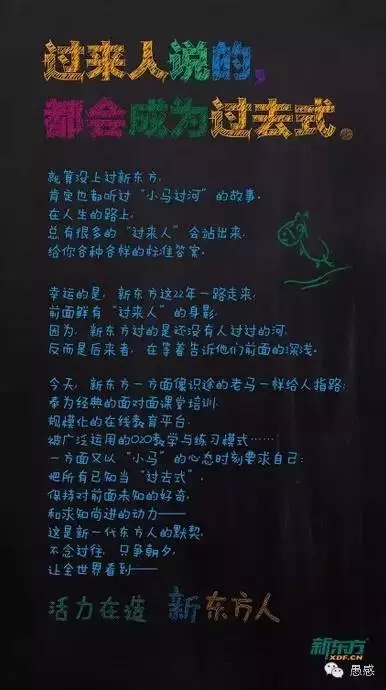 过来人说的,
都会成为过去式。
就算没上过新东方,
肯定也都听过“小马过河”的故事。
在人生的路上,
总有很多的“过来人”会站出来,
给你各种各样的标准答案。
幸运的是,新东方这22年一路走来,
前面鲜有“过来人”的身影。
因为,新东方过的是还没有人过过的河,
反而是后来者,在等着告诉他们前面的深浅。
今天,新东方一方面像识途的老马一样给人指路:
奉为经典的面对面课堂培训,
规模化的在线教育平台,
被广泛运用的O2O教学与练习模式……
一方面又以“小马”的心态时刻要求自己:
把所有已知当“过去式”,
保持对前面未知的好奇,
和求知尚进的动力——
这是新一代东方人的默契,
不念过往,只争朝夕,
让全世界看到——
活力在造 新东方人
新东方
XDF.CN
愚感